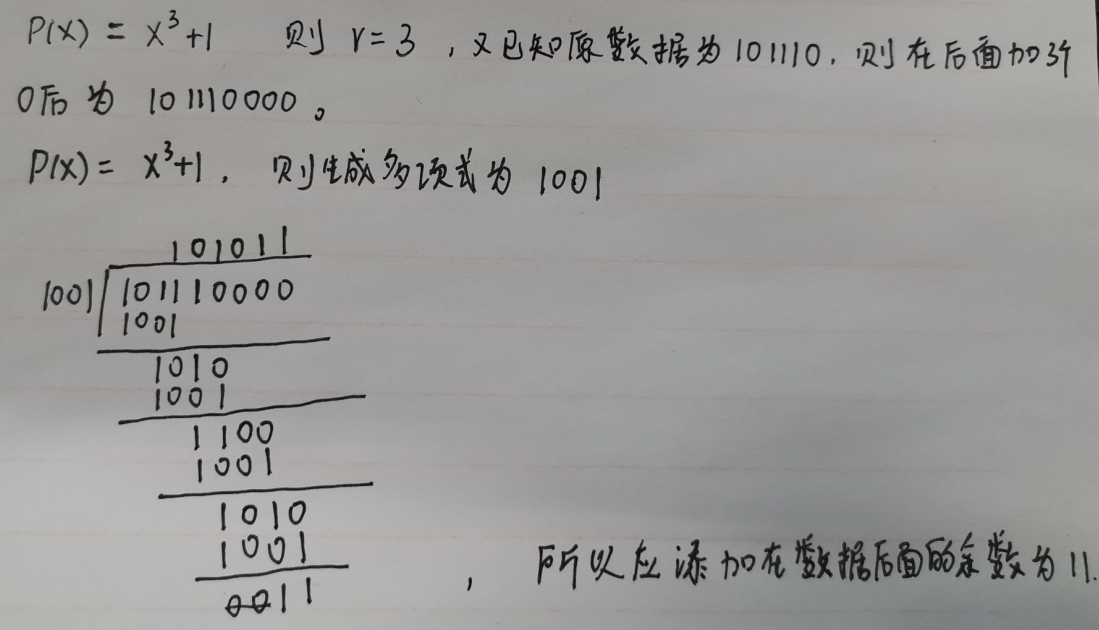 P(X) = X³+1 则 r=3 , 又已知原数据为 101110, 则在后面加3个
0后为 101110000。
P(X) = X³+1, 则生成多项式为 1001
101011
1001 101110000
1001
1010
1001
1100
1001
1010
1001
0011 , 所以应添加在数据后面的余数为 11.